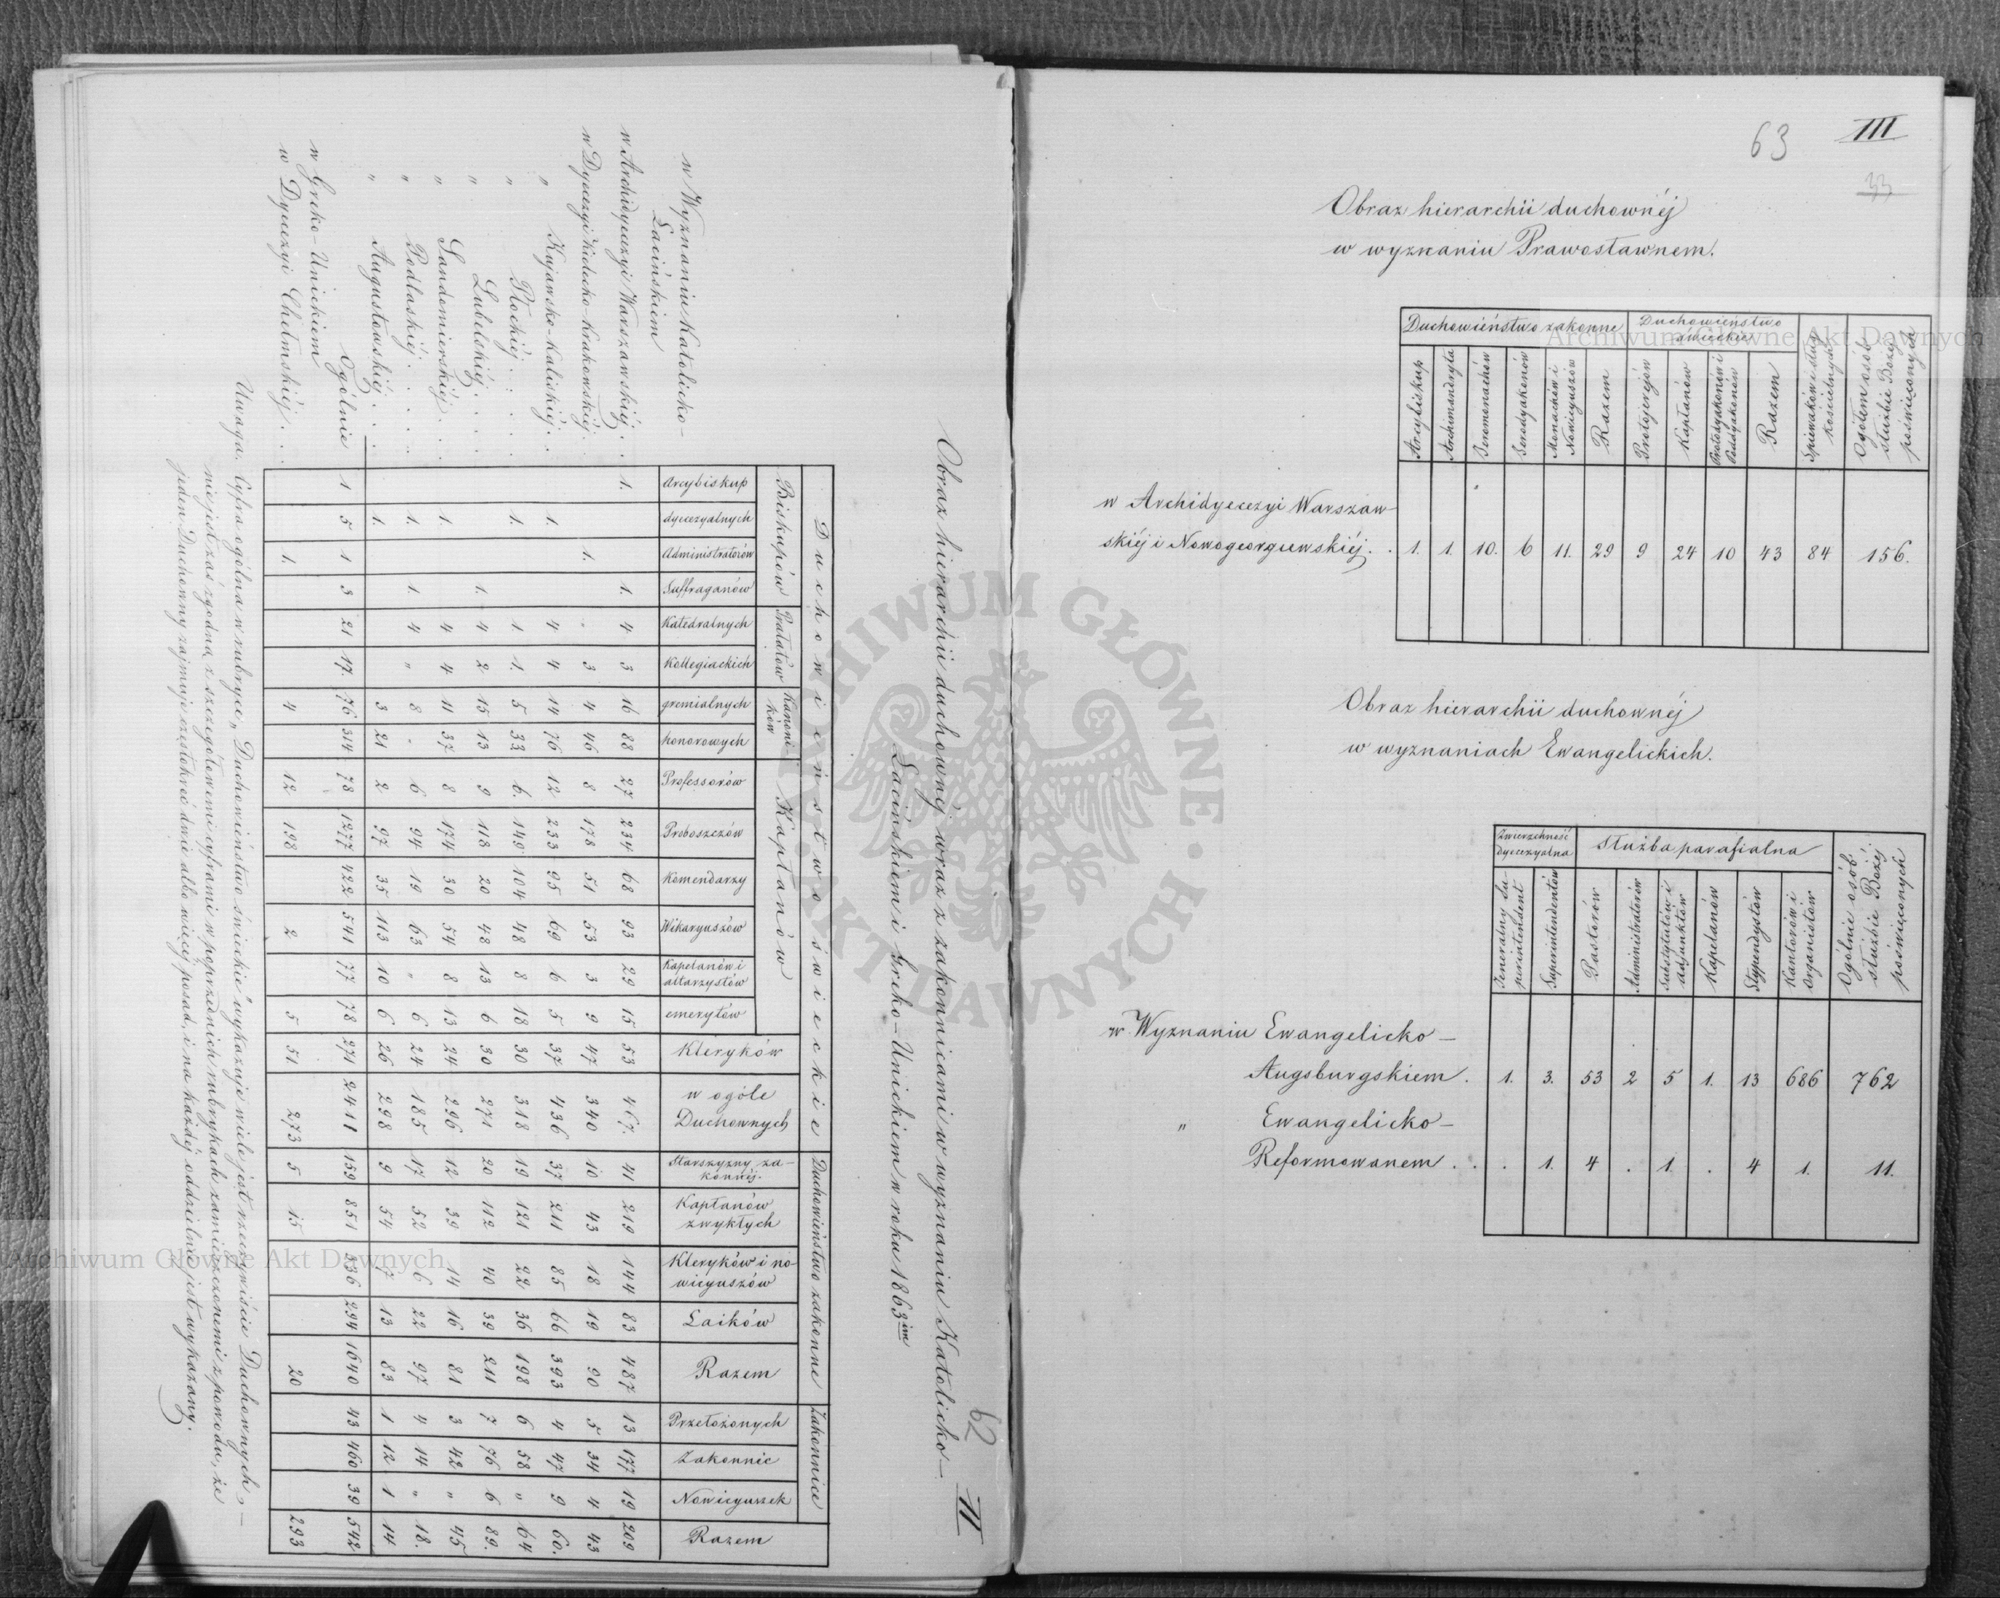 62 II
Obraz hierarchii duchownéj wraz z zakonnicami w wyznaniu Katolicko-
Łacińskiem i Greko-Unickiem w roku 1863im
Duchowieństwo świeckie | Duchowieństwo zakonne | Zakonnice
Biskupów | Prałatów | Kanoników | Kapłanów
Arcybiskup | dyecezyalnych | Administratorów | Suffraganów | Katedralnych | Kollegiackich | gremialnych | honorowych | Professorów | Proboszczów | Komendarzy | Wikaryuszów | Kapelanów i altarzystów | emerytów | Kleryków | w ogóle Duchownych | Starszyzny zakonnéj. | Kapłanów zwykłych | Kleryków i nowicyuszów | Laików | Razem | Przełożonych | Zakonnic | Nowicyuszek | Razem
w Wyznaniu Katolicko-
Łacińskiem
w Archidyecezyi Warszawskiéj . . 1. 1. 4 3 16 88 27 234 68 93 29 15 53 467. 41 219 144 83 487 13 177 19 209
w Dyecezyi Kielecko-Krakowskiéj . 1. " 3 4 46 8 178 51 53 3 9 47 340 10 43 18 19 90 5 34 4 43
" Kujawsko-Kaliskiéj . . 1. 4 4 14 76 12 233 95 69 6 5 37 436 37 211 85 66 393 4 47 9 60.
" Płockiéj . . . . 1. 1 1. 5 33 6. 149 104 48 8 18 30 318 19 121 22 36 198 6 58 " 64
" Lubelskiéj . . . 1. 4 2 15 13 9 118 20 48 13 6 30 271 20 112 40 39 211 7 76 6 89.
" Sandomierskiéj . . . 1. 4 4 11 37 8 174 30 54 8 13 24 296 12 39 14 16 81 3 42 " 45
" Podlaskiéj . . . . 1. 1. 4 " 8 " 6 94 19 63 " 6 24 185 17 52 6 22 97 4 14 " 18.
" Augustowskiéj . . . 1. 3 21 2 97 35 113 10 6 26 298 9 54 7 13 83 1 12 1 14
Ogólnie 1 5 1 3 21 17. 76 314 78 1277 422 541 77 78 271 2411 159 851 336 294 1640 43 460 39 542
w Greko-Unickiem
w Dyecezyi Chełmskiéj . . . 1. 4 12 198 2 5 51 273 5 15 20 293
Uwaga. Cyfra ogólna w rubryce „Duchowieństwo świeckie" wykazuje wiele jest rzeczywiście Duchownych,-
nie jest zaś zgodną z szczegółowemi cyframi w poprzednich rubrykach zamieszczonemi z powodu, że
jeden Duchowny zajmuje częstokroć dwie albo więcéj posad, i na każdéj oddzielnie jest wykazany.
63 III
33
Obraz hierarchii duchownéj
w wyznaniu Prawosławnem.
Duchowieństwo zakonne | Duchowieństwo świeckie | Spiewaków i sług kościelnych | Ogółem osób służbie Bożéj poświęconych
Arcybiskup | Archimandryta | Jeromonachów | Jerodyakonów | Monachów i Nowicyuszów | Razem | Protojerejów | Kapłanów | Protodyakonów i Poddyakonów | Razem
w Archidyecezyi Warszaw-
skiéj i Nowogeorgiewskiéj. . 1. 1. 10. 6 11. 29 9 24 10 43 84 156.
Obraz hierarchii duchownéj
w wyznaniach Ewangelickich.
Zwierzchność dyecezyalna | Służba parafialna | Ogólnie osób służbie Bożéj poświęconych
Jeneralny Superintendent | Superintendentów | Pastorów | Administratorów | Substytutów i adjunktów | Kapelanów | Stypendystów | Kantorów i Organistów
w Wyznaniu Ewangelicko-
Augsburgskiem . 1. 3. 53 2 5 1. 13 686 762
" Ewangelicko-
Reformowanem . . . 1. 4 . 1. . 4 1. 11.
Archiwum Główne Akt Dawnych
Archiwum Główne Akt Dawnych
ARCHIWUM GŁÓWNE · AKT DAWNYCH ·